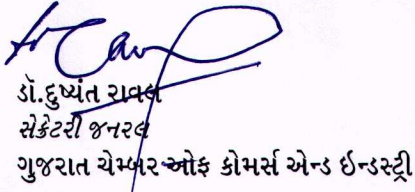 ડૉ.દુષ્યંત રાવલ
સેક્રેટરી જનરલ
ગુજરાત ચેમ્બર ઓફ કોમર્સ એન્ડ ઇન્ડસ્ટ્રી